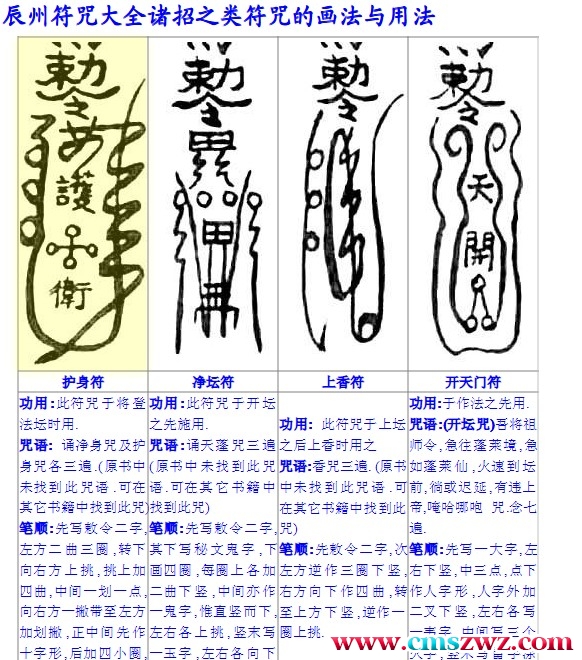 辰州符咒大全诸招之类符咒的画法与用法
勅令
護
衛
勅令
勅令
勅令
天
開
护身符
净坛符
上香符
开天门符
功用:此符咒于将登
法坛时用.
咒语: 诵净身咒及护
身咒各三遍.(原书中
未找到此咒语.可在
其它书籍中找到此咒)
笔顺:先写敕令二字,
左方二曲三圈,转下
向右方上挑,挑上加
四曲,中间一划一点,
向右方一撇带至左方
加划撇,正中间先作
十字形,后加四小圈,
功用:此符咒于开坛
之先施用.
咒语:诵天蓬咒三遍
(原书中未找到此咒
语.可在其它书籍中
找到此咒)
笔顺:先写敕令二字,
其下写秘文鬼字,下
画四圈,每圈上各加
二曲下竖,中间亦作
一鬼字,惟直竖而下,
左右各上挑,竖末写
一玉字,左右各向下
功用: 此符咒于上坛
之后上香时用之
咒语:香咒三遍.(原书
中未找到此咒语.可
在其它书籍中找到此
咒)
笔顺:先敕令二字,次
左方逆作三圈下竖,
右方向下作四曲,转
至上方下竖,逆作一
圈上挑.
功用:于作法之先用.
咒语:(开坛咒)吾将祖
师令,急往蓬莱境,急
如蓬莱仙,火速到坛
前,倘或迟延,有违上
帝,唵哈哪咆 咒.念七
遍.
笔顺:先写一大字,左
右下竖,中三点,点下
作人字形,人字外加
二叉下竖,左右各写
一韦字,中间写三个
火字,竖末写雷字
www.cmszwz.com